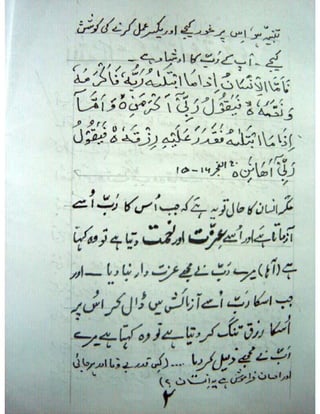 تنبیہ ہے، اس پر غور کیجے اور یکسر عمل کرنے کی کوشش
کیجے ۔ آپ کے رَبّ کا ارشاد ہے ۔
فَاَمَّا الْاِنْسَانُ اِذَا مَا ابْتَلٰىهُ رَبُّهٗ فَاَكْرَمَهٗ
وَنَعَّمَهٗ ەۙ فَيَقُوْلُ رَبِّيْۤ اَكْرَمَنِ ەؕ وَاَمَّاۤ
اِذَا مَا ابْتَلٰىهُ فَقَدَرَ عَلَيْهِ رِزْقَهٗ ەۙ فَيَقُوْلُ
رَبِّيْۤ اَهَانَنِ ەۚ الفجر ۱۶-۱۵
مگر انسان کا حال تو یہ ہے کہ جب اُس کا رَبّ اُسے
آزماتا ہے اور اُسے عزّت اور نعمت دیتا ہے تو وہ کہتا
ہے (آہا) میرے رَبّ نے مجھے عزت دار بنا دیا ۔ اور
جب اسکا رَبّ اُسے آزمائش میں ڈال کر اُس پر
اُسکا رزق تنگ کر دیتا ہے تو وہ کہتا ہے میرے
رَبّ نے مجھے ذلیل کر دیا .... (کس قدر بے وفا اور ہرجائی
اور احسان فراموش ہے یہ انسان ؟)
۲